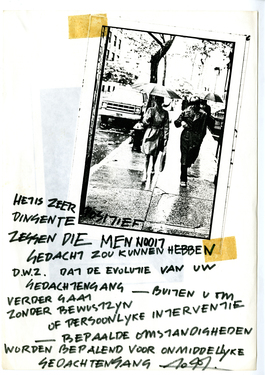 HET IS ZEER
DINGEN TE POSITIEF
ZEGGEN DIE MEN NOOIT
GEDACHT ZOU KUNNEN HEBBEN
D.W.Z. DAT DE EVOLUTIE VAN UW
GEDACHTENGANG — BUITEN U OM
VERDER GAAT
ZONDER BEWUSTZYN
OF PERSOONLYKE INTERVENTIE
— BEPAALDE OMSTANDIGHEDEN
WORDEN BEPALEND VOOR ONMIDDELYKE
GEDACHTENGANG